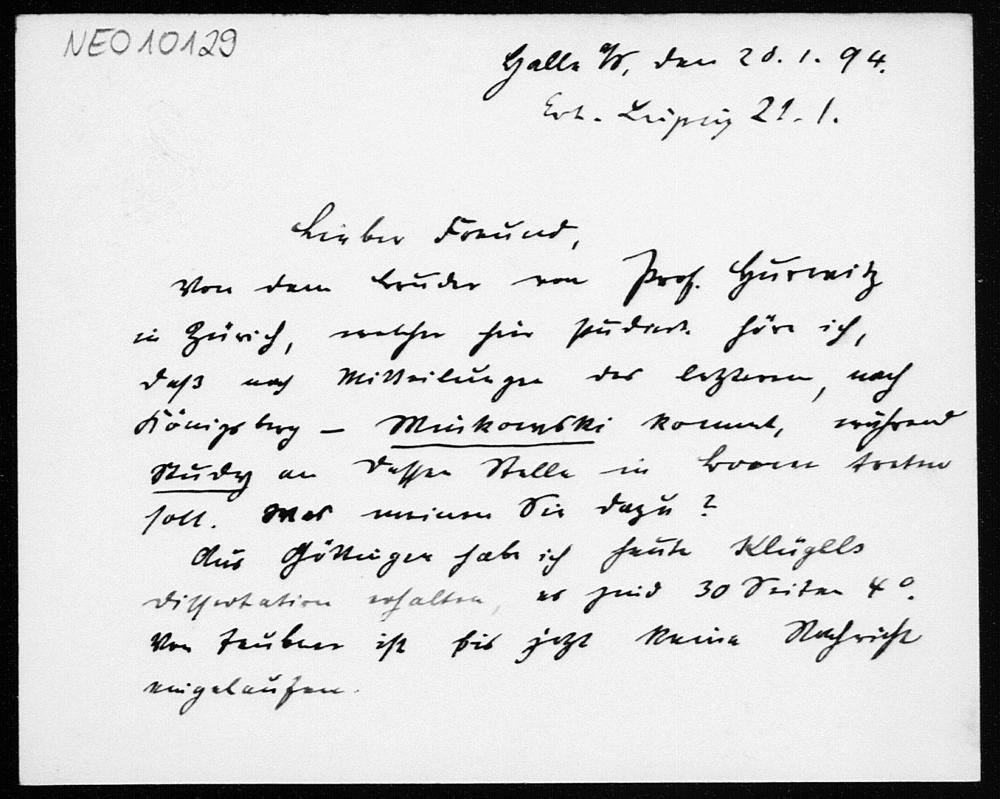 NEO10129
Halle a/S, den 20. 1. 94.
Erh. Leipzig 21. 1.
Lieber Freund,
Von dem Bruder von Prof. Hurwitz
in Zürich, welcher hier studiert höre ich,
daß nach Mitteilungen des letzteren, nach
Königsberg – Minkowski kommt, während
Study an dessen Stelle in Bonn treten
soll. Was meinen Sie dazu?
Aus Göttingen habe ich heute Klügels
Dissertation erhalten, es sind 30 Seiten 4°.
Von Teubner ist bis jetzt keine Nachricht
eingelaufen.